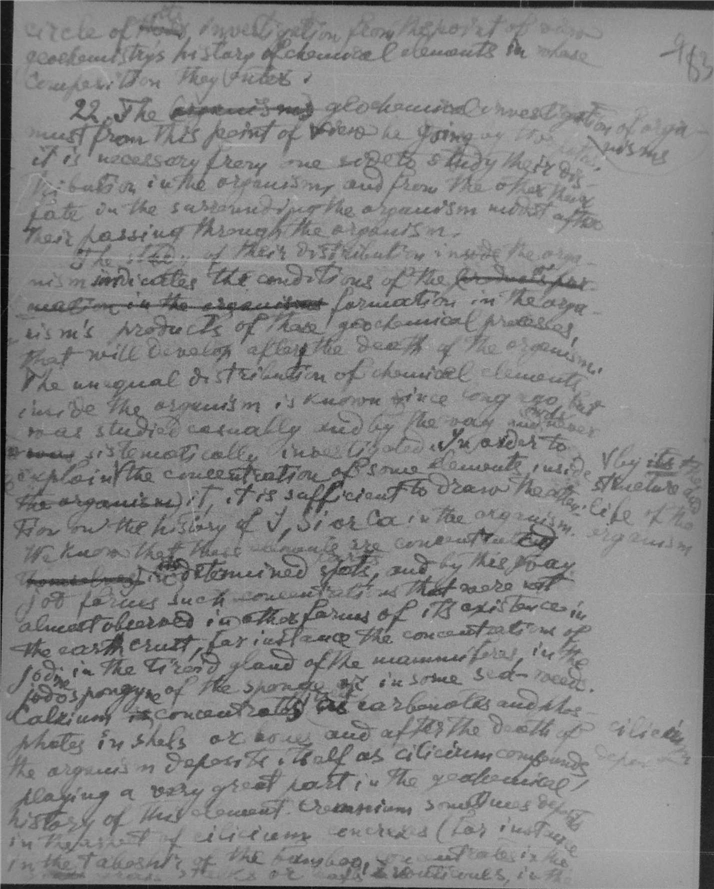 circle of their investigation from the point of view
geochemistry's history of chemical elements in whose
composition they enters.
983
22. The organisms geochemical investigation of orga-
nisms
must from this point of view be going by two
it is necessary from one side to study their dis-
tribution in the organisms and from the other their
fate in the surrounding the organism midst after
their passing through the organism.
The study of their distribution inside the orga-
nism indicates the conditions of the products for-
mation in the organisms formation in the orga-
nism's products of those geochemical processes,
that will develop after the death of the organism.
The unequal distribution of chemical elements
inside the organism is known since long ago, but
was studied casually and by the way and never
sistematically investigated. In order to
explain the concentration of some elements inside
the organism it, it is sufficient to draw the atten-
V by its
structure and
life of the
organism
tion on the history of J, Si or Ca in the organism.
We know that these elements are concentrated
themselves in determined spots, and by this way
jod forms such concentrations that were not
almost observed in other forms of its existence in
the earth crust, for instance the concentrations of
jod in the tireoid gland of the mammifores, in the
jodospongyne of the sponge or in some sea-weeds.
Calcium is concentrated as carbonates and phos-
phates in shels or bones and after the death of
the organism deposits itself as cilicium compounds
cilicium
playing a very great part in the geochemical
history of this element. Cremnium sometimes deposits
in the aspect of cilicium concrexes (for instance
in the tabashir of the bamboo, concentrates in the
stalks or in the